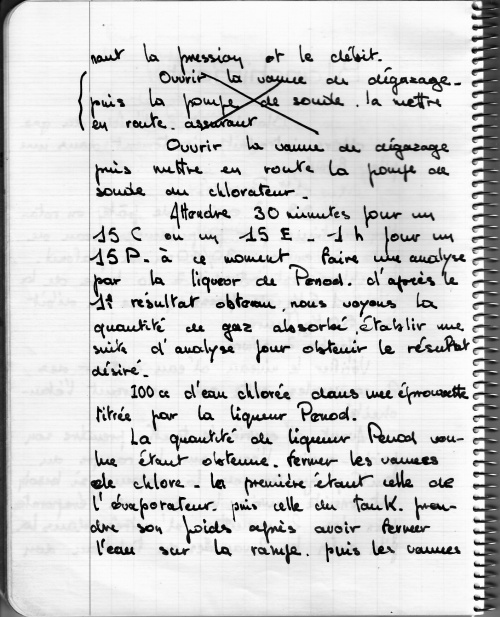 nant la pression et le débit.
Ouvrir la vanne de dégazage.
puis la pompe de soude. la mettre
en route. assurant
Ouvrir la vanne de dégazage
puis mettre en route la pompe de
soude du chlorateur.
Attendre 30 minutes pour un
15 C ou un 15 E. - 1 h pour un
15 P. à ce moment faire une analyse
par la liqueur de Penod. d'après le
1er résultat obtenu. nous voyons la
quantité de gaz absorbé. Établir une
suite d'analyse pour obtenir le résultat
désiré.
100 cc d'eau chlorée dans une éprouvette
titrée par la liqueur Penod.
La quantité de liqueur Penod vou-
lue étant obtenue. fermer les vannes
de chlore. la première étant celle de
l'évaporateur. puis celle du tank. pren-
dre son poids après avoir fermer
l'eau sur la rampe. puis les vannes